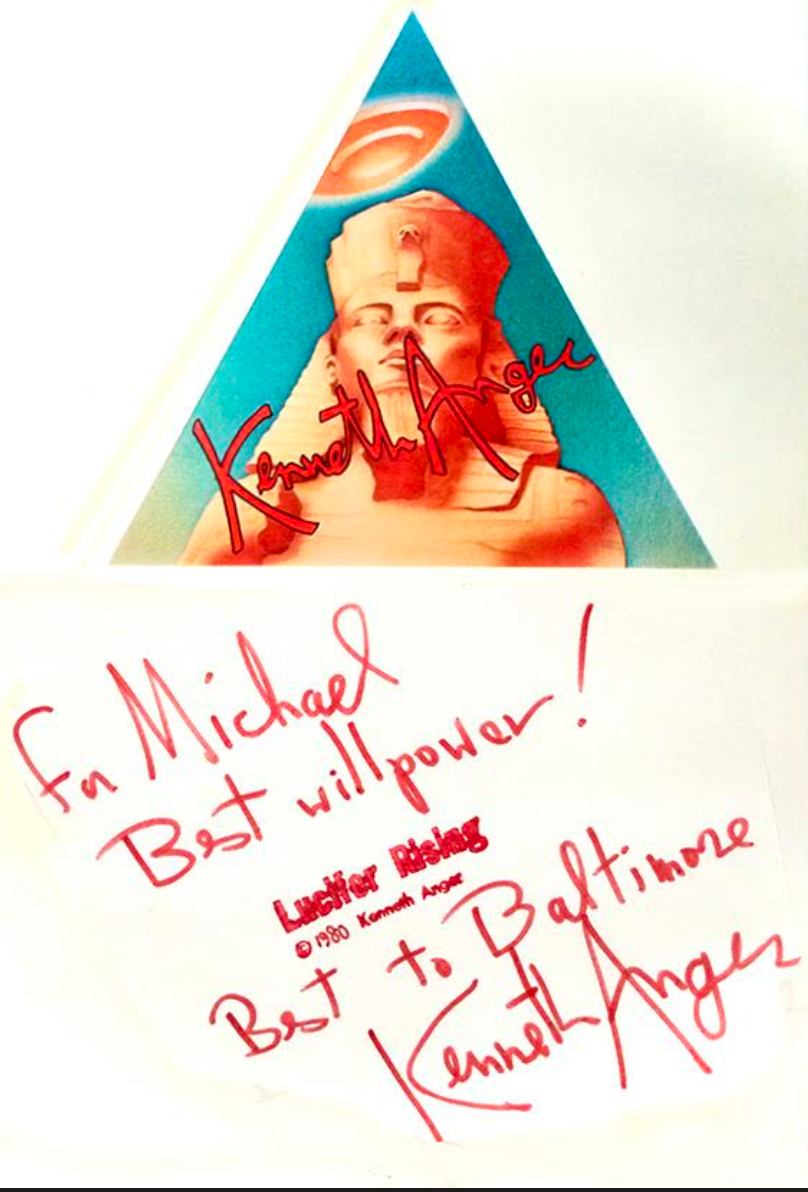 Kenneth Anger
For Michael
Best willpower!
Lucifer Rising
© 1980 Kenneth Anger
Best to Baltimore
Kenneth Anger